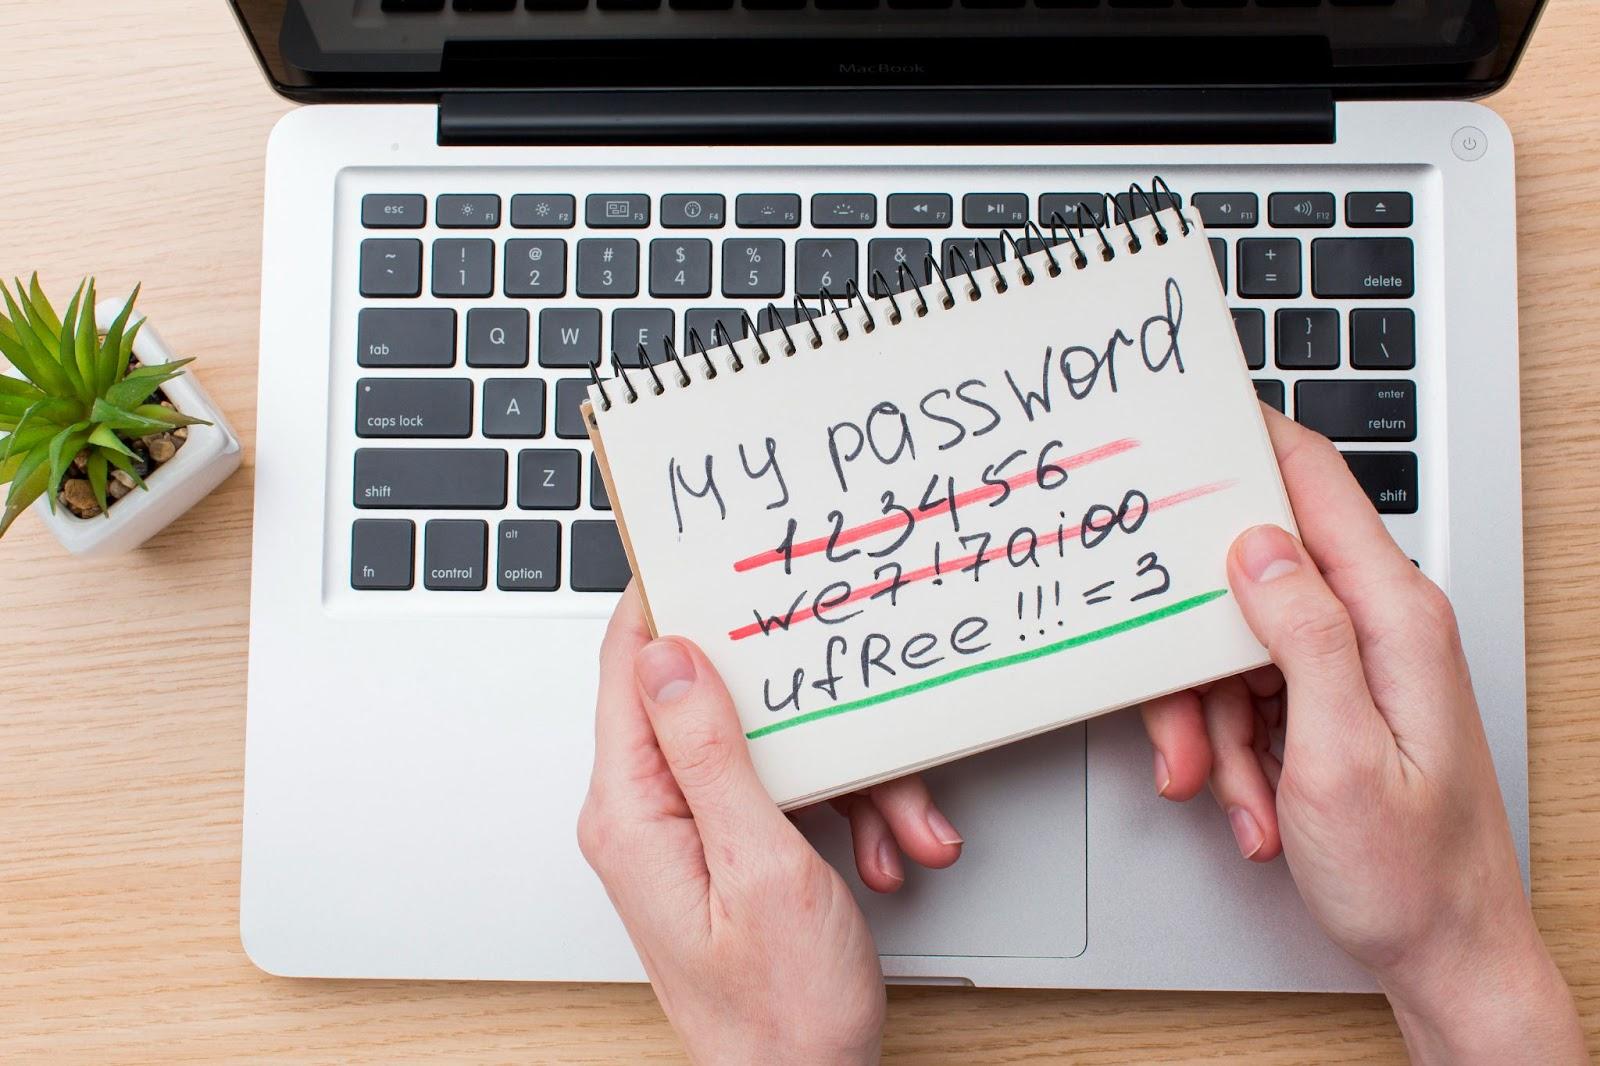 MacBook
esc F1 F2 F3 F4 F5 F6 F7 F8 F9 F11 F12
~ ` ! 1 @ 2 # 3 $ 4 % 5 ^ 6 & + = delete
tab Q W E R } ] | \
caps lock A enter return
shift Z shift
fn control alt option
My password
123456
we7!7aioo
ufRee!!!=3